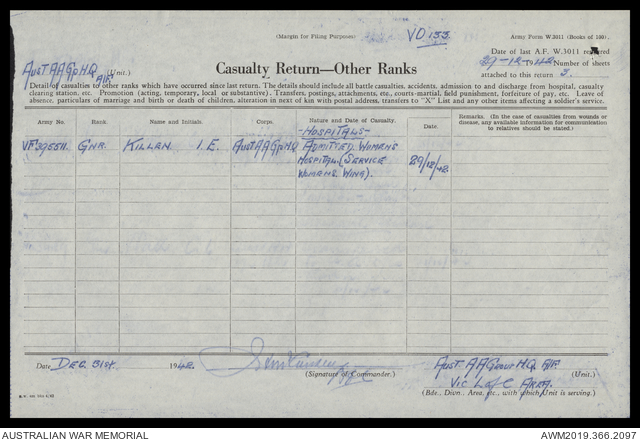 (Margin for Filing Purposes)
VD 133
Army Form W.3011 (Books of 100).
Aust AA Gp HQ (Unit.)
AIF.
Casualty Return—Other Ranks
Date of last A.F. W.3011 rendered
29-12-42 Number of sheets
attached to this return 3.
Detail of casualties to other ranks which have occurred since last return. The details should include all battle casualties, accidents, admission to and discharge from hospital, casualty
clearing station, etc. Promotion (acting, temporary, local or substantive). Transfers, postings, attachments, etc., courts-martial, field punishment, forfeiture of pay, etc. Leave of
absence, particulars of marriage and birth or death of children, alteration in next of kin with postal address, transfers to "X" List and any other items affecting a soldier's service.
Army No. Rank. Name and Initials. Corps. Nature and Date of Casualty. Date. Remarks. (In the case of casualties from wounds or
disease, any available information for communication
to relatives should be stated.)
-HOSPITALS-
VF395511. GNR. KILLEN I.E. AUST AA GP HQ ADMITTED WOMEN'S
HOSPITAL (SERVICE 29/12/42
WOMENS WING).
Date DEC 31st 1942
(Signature of Commander.)
AUST AA GROUP HQ AIF (Unit.)
VIC L of C AREA.
(Bde., Divn., Area, etc., with which Unit is serving.)
AUSTRALIAN WAR MEMORIAL
AWM2019.366.2097